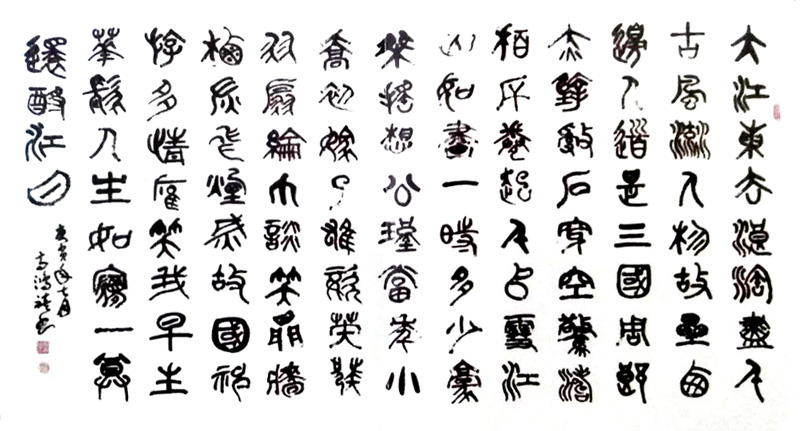 大江東去浪淘盡千
古風流人物故壘西
邊人道是三國周郎
赤壁亂石穿空驚濤
拍岸卷起千堆雪江
山如畫一時多少豪
傑遙想公瑾當年小
喬初嫁了雄姿英發
羽扇綸巾談笑間檣
櫓灰飛煙滅故國神
遊多情應笑我早生
華髮人生如夢一尊
還酹江月